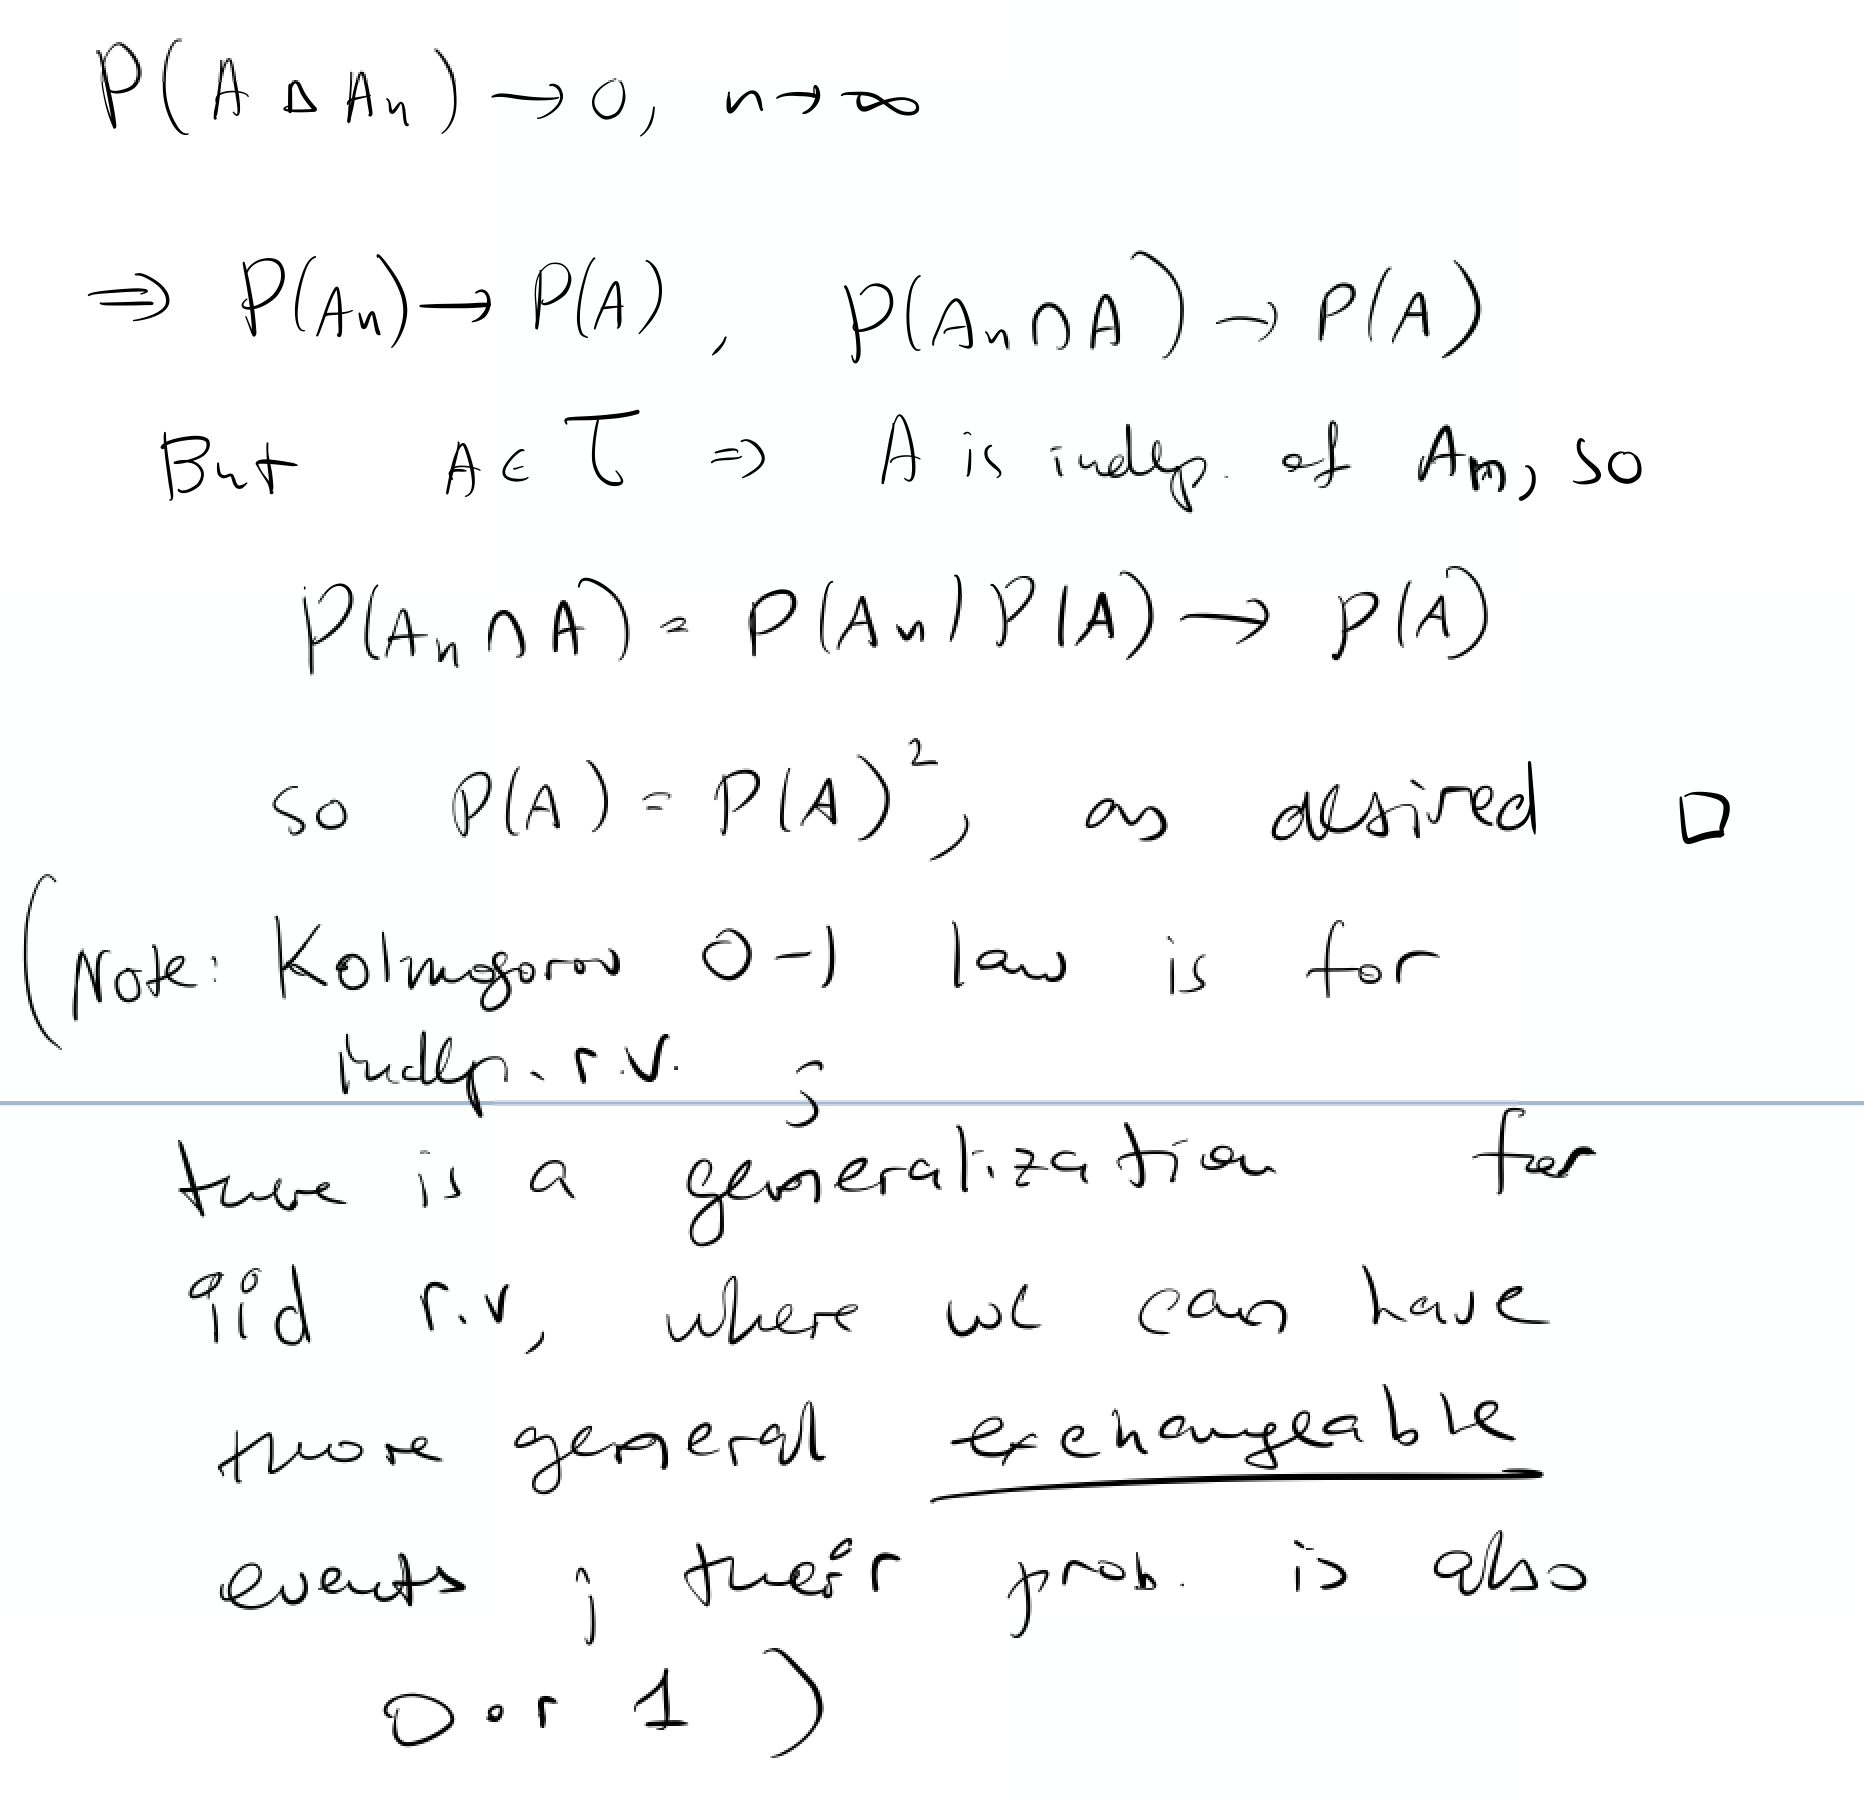 P(A Δ Aₙ) → 0, n → ∞
⇒ P(Aₙ) → P(A), P(Aₙ ∩ A) → P(A)
But A ∈ τ ⇒ A is indep. of Aₙ, so
P(Aₙ ∩ A) = P(Aₙ) P(A) → P(A)
so P(A) = P(A)², as desired □
(Note: Kolmogorov 0-1 law is for
indep. r.v. ;
there is a generalization for
iid r.v, where we can have
more general exchangeable
events ; their prob. is also
0 or 1 )